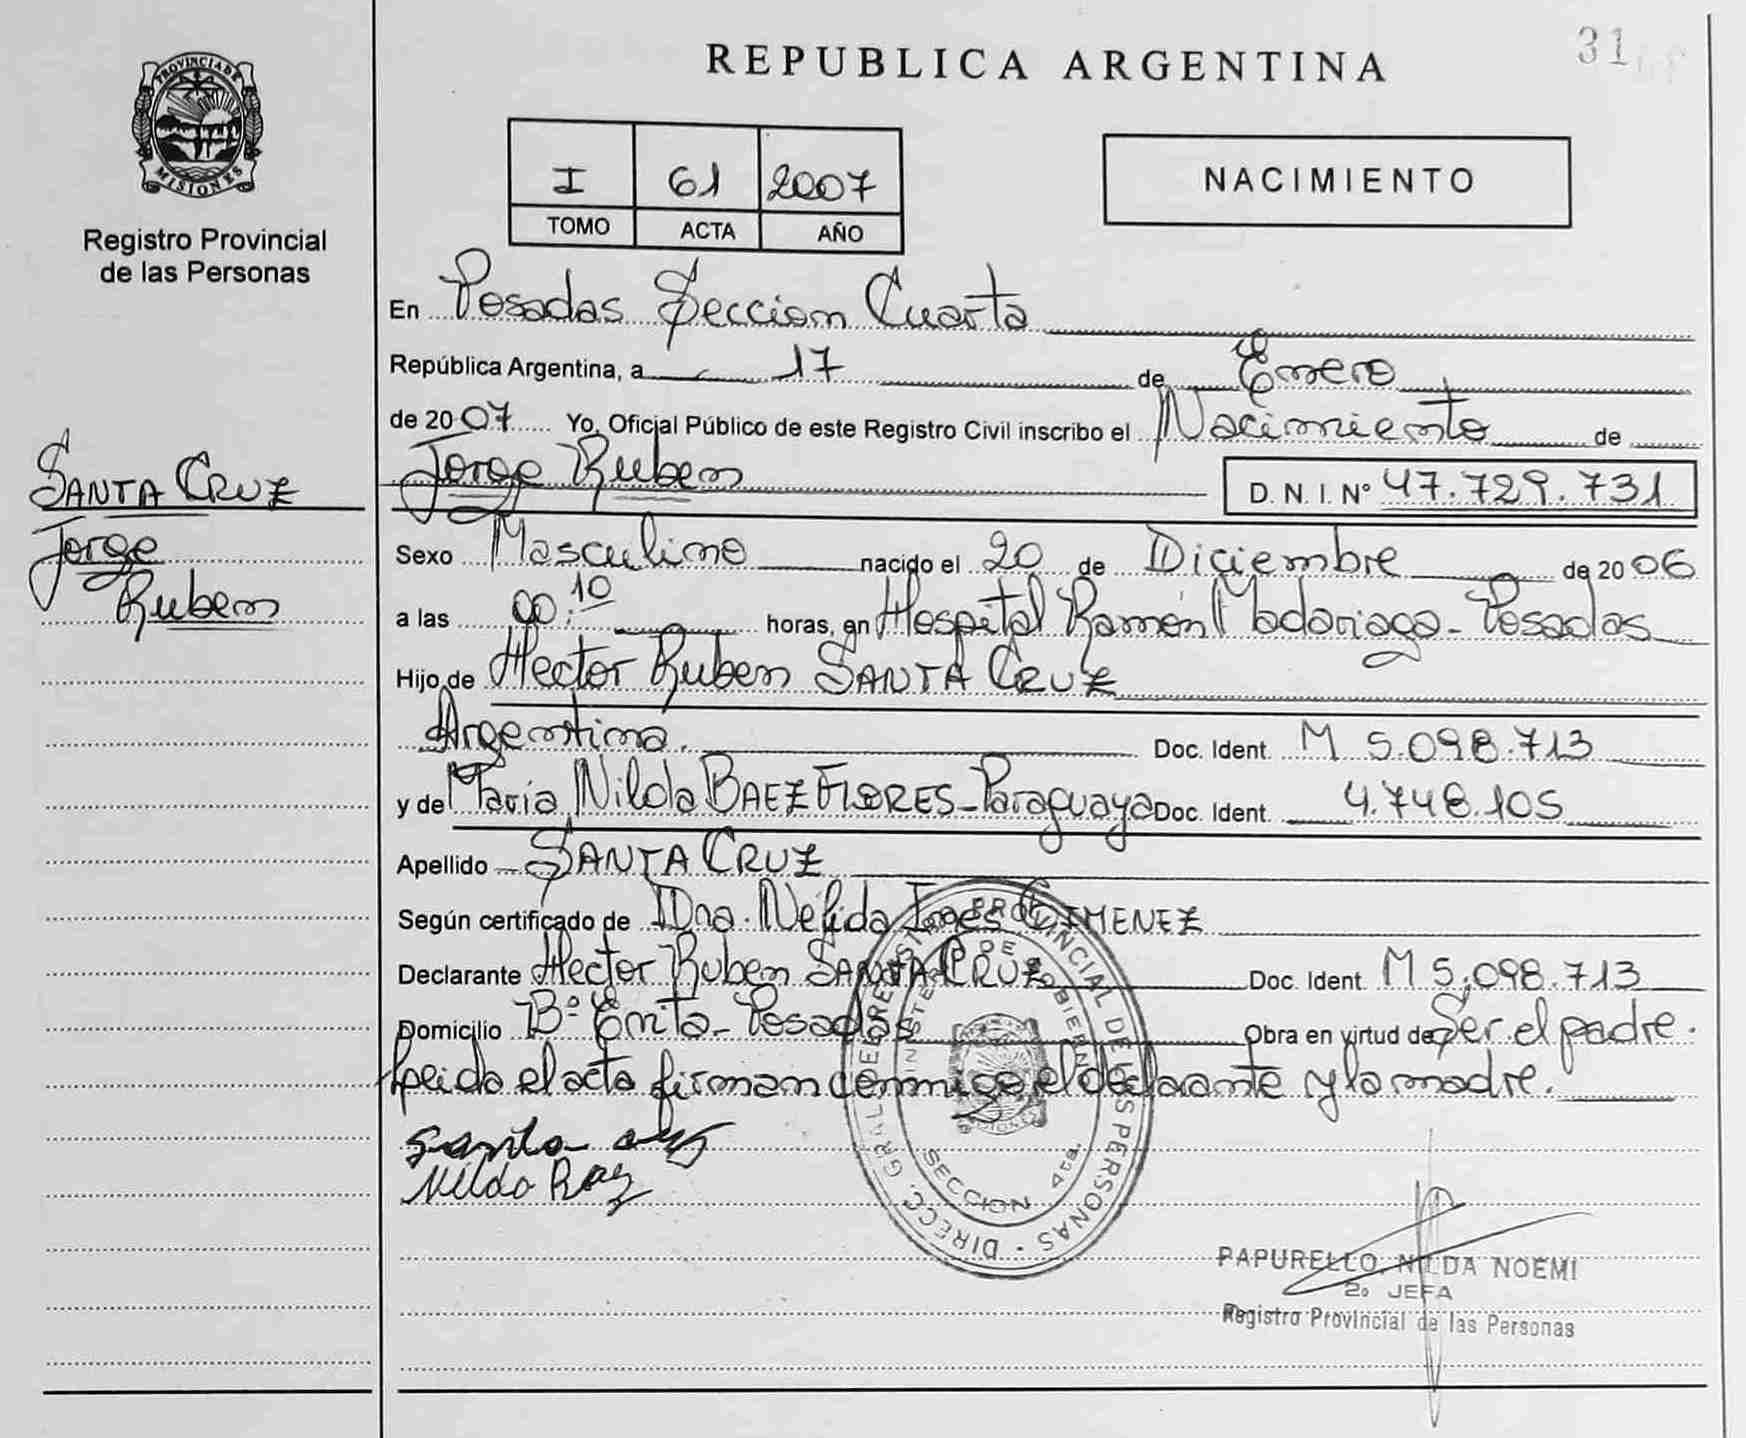 REPUBLICA ARGENTINA
31
PROVINCIA DE MISIONES
Registro Provincial
de las Personas
I 61 2007
TOMO ACTA AÑO
NACIMIENTO
En Posadas Seccion Cuarta
República Argentina, a 17 de Enero
de 2007 Yo, Oficial Público de este Registro Civil inscribo el Nacimiento de
Jorge Ruben D. N. I. Nº 47.729.731
SANTA CRUZ
Jorge
Ruben
Sexo Masculino nacido el 20 de Diciembre de 2006
a las 00:10 horas, en Hospital Ramón Madariaga - Posadas
Hijo de Hector Ruben SANTA CRUZ
Argentina. Doc. Ident. M 5.098.713
y de Maria Nilda BAEZ FLORES - Paraguaya Doc. Ident. 4.748.105
Apellido SANTA CRUZ
Según certificado de Dna. Nelida Ines GIMENEZ
Declarante Hector Ruben SANTA CRUZ Doc. Ident. M 5.098.713
Domicilio Bº Emita - Posadas Obra en virtud de Ser el padre.
Leida el acta firman conmigo el declarante y la madre.
Santa Cruz
Nilda Baez
DIRECC. GRAL. DEL REGISTRO PROVINCIAL DE LAS PERSONAS
MINISTERIO DE GOBIERNO
SECCION 4ta.
PAPURELLO, NILDA NOEMI
2º JEFA
Registro Provincial de las Personas